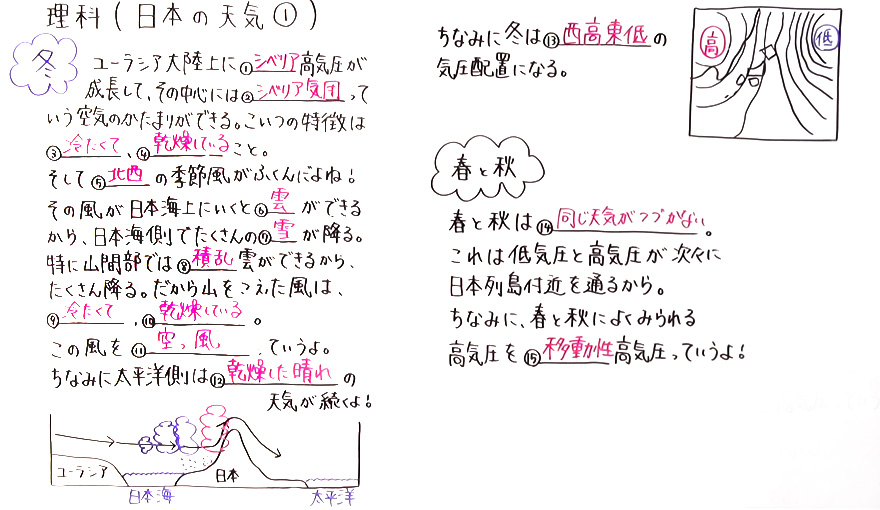 理科(日本の天気①)
冬
ユーラシア大陸上に①シベリア高気圧が
成長して、その中心には②シベリア気団って
いう空気のかたまりができる。こいつの特徴は
③冷たくて、④乾燥していること。
そして⑤北西の季節風がふくんだよね!
その風が日本海上にいくと⑥雲ができる
から、日本海側でたくさんの⑦雪が降る。
特に山間部では⑧積乱雲ができるから、
たくさん降る。だから山をこえた風は、
⑨冷たくて、⑩乾燥している。
この風を⑪空っ風っていうよ。
ちなみに太平洋側は⑫乾燥した晴れの
天気が続くよ!
ユーラシア
日本海
日本
太平洋
ちなみに冬は⑬西高東低の
気圧配置になる。
高
低
春と秋
春と秋は⑭同じ天気がつづかない。
これは低気圧と高気圧が次々に
日本列島付近を通るから。
ちなみに、春と秋によくみられる
高気圧を⑮移動性高気圧っていうよ!